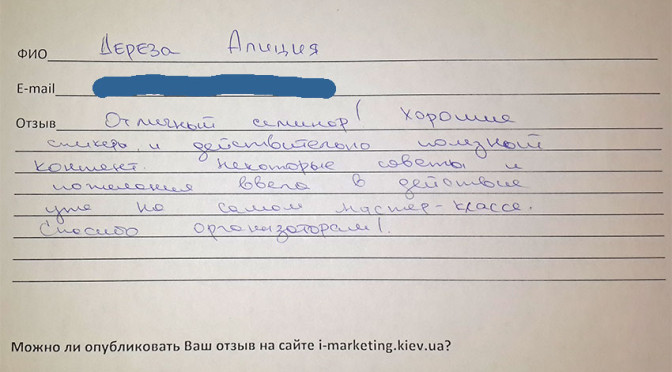 ФИО Дереза Алиция
E-mail
Отзыв Отличный семинар! Хорошие
спикеры и действительно полезный
контент. Некоторые советы и
пожелания ввела в действие
уже на самом мастер-классе.
Спасибо организаторам!
Можно ли опубликовать Ваш отзыв на сайте i-marketing.kiev.ua?